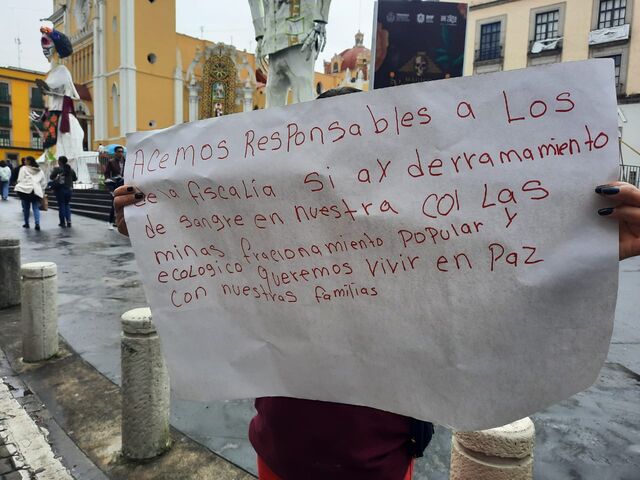 Acemos Responsables a Los
de la fiscalía si ay derramamiento
de sangre en nuestra col Las
minas fracionamiento Popular y
ecologico queremos vivir en Paz
con nuestras familias